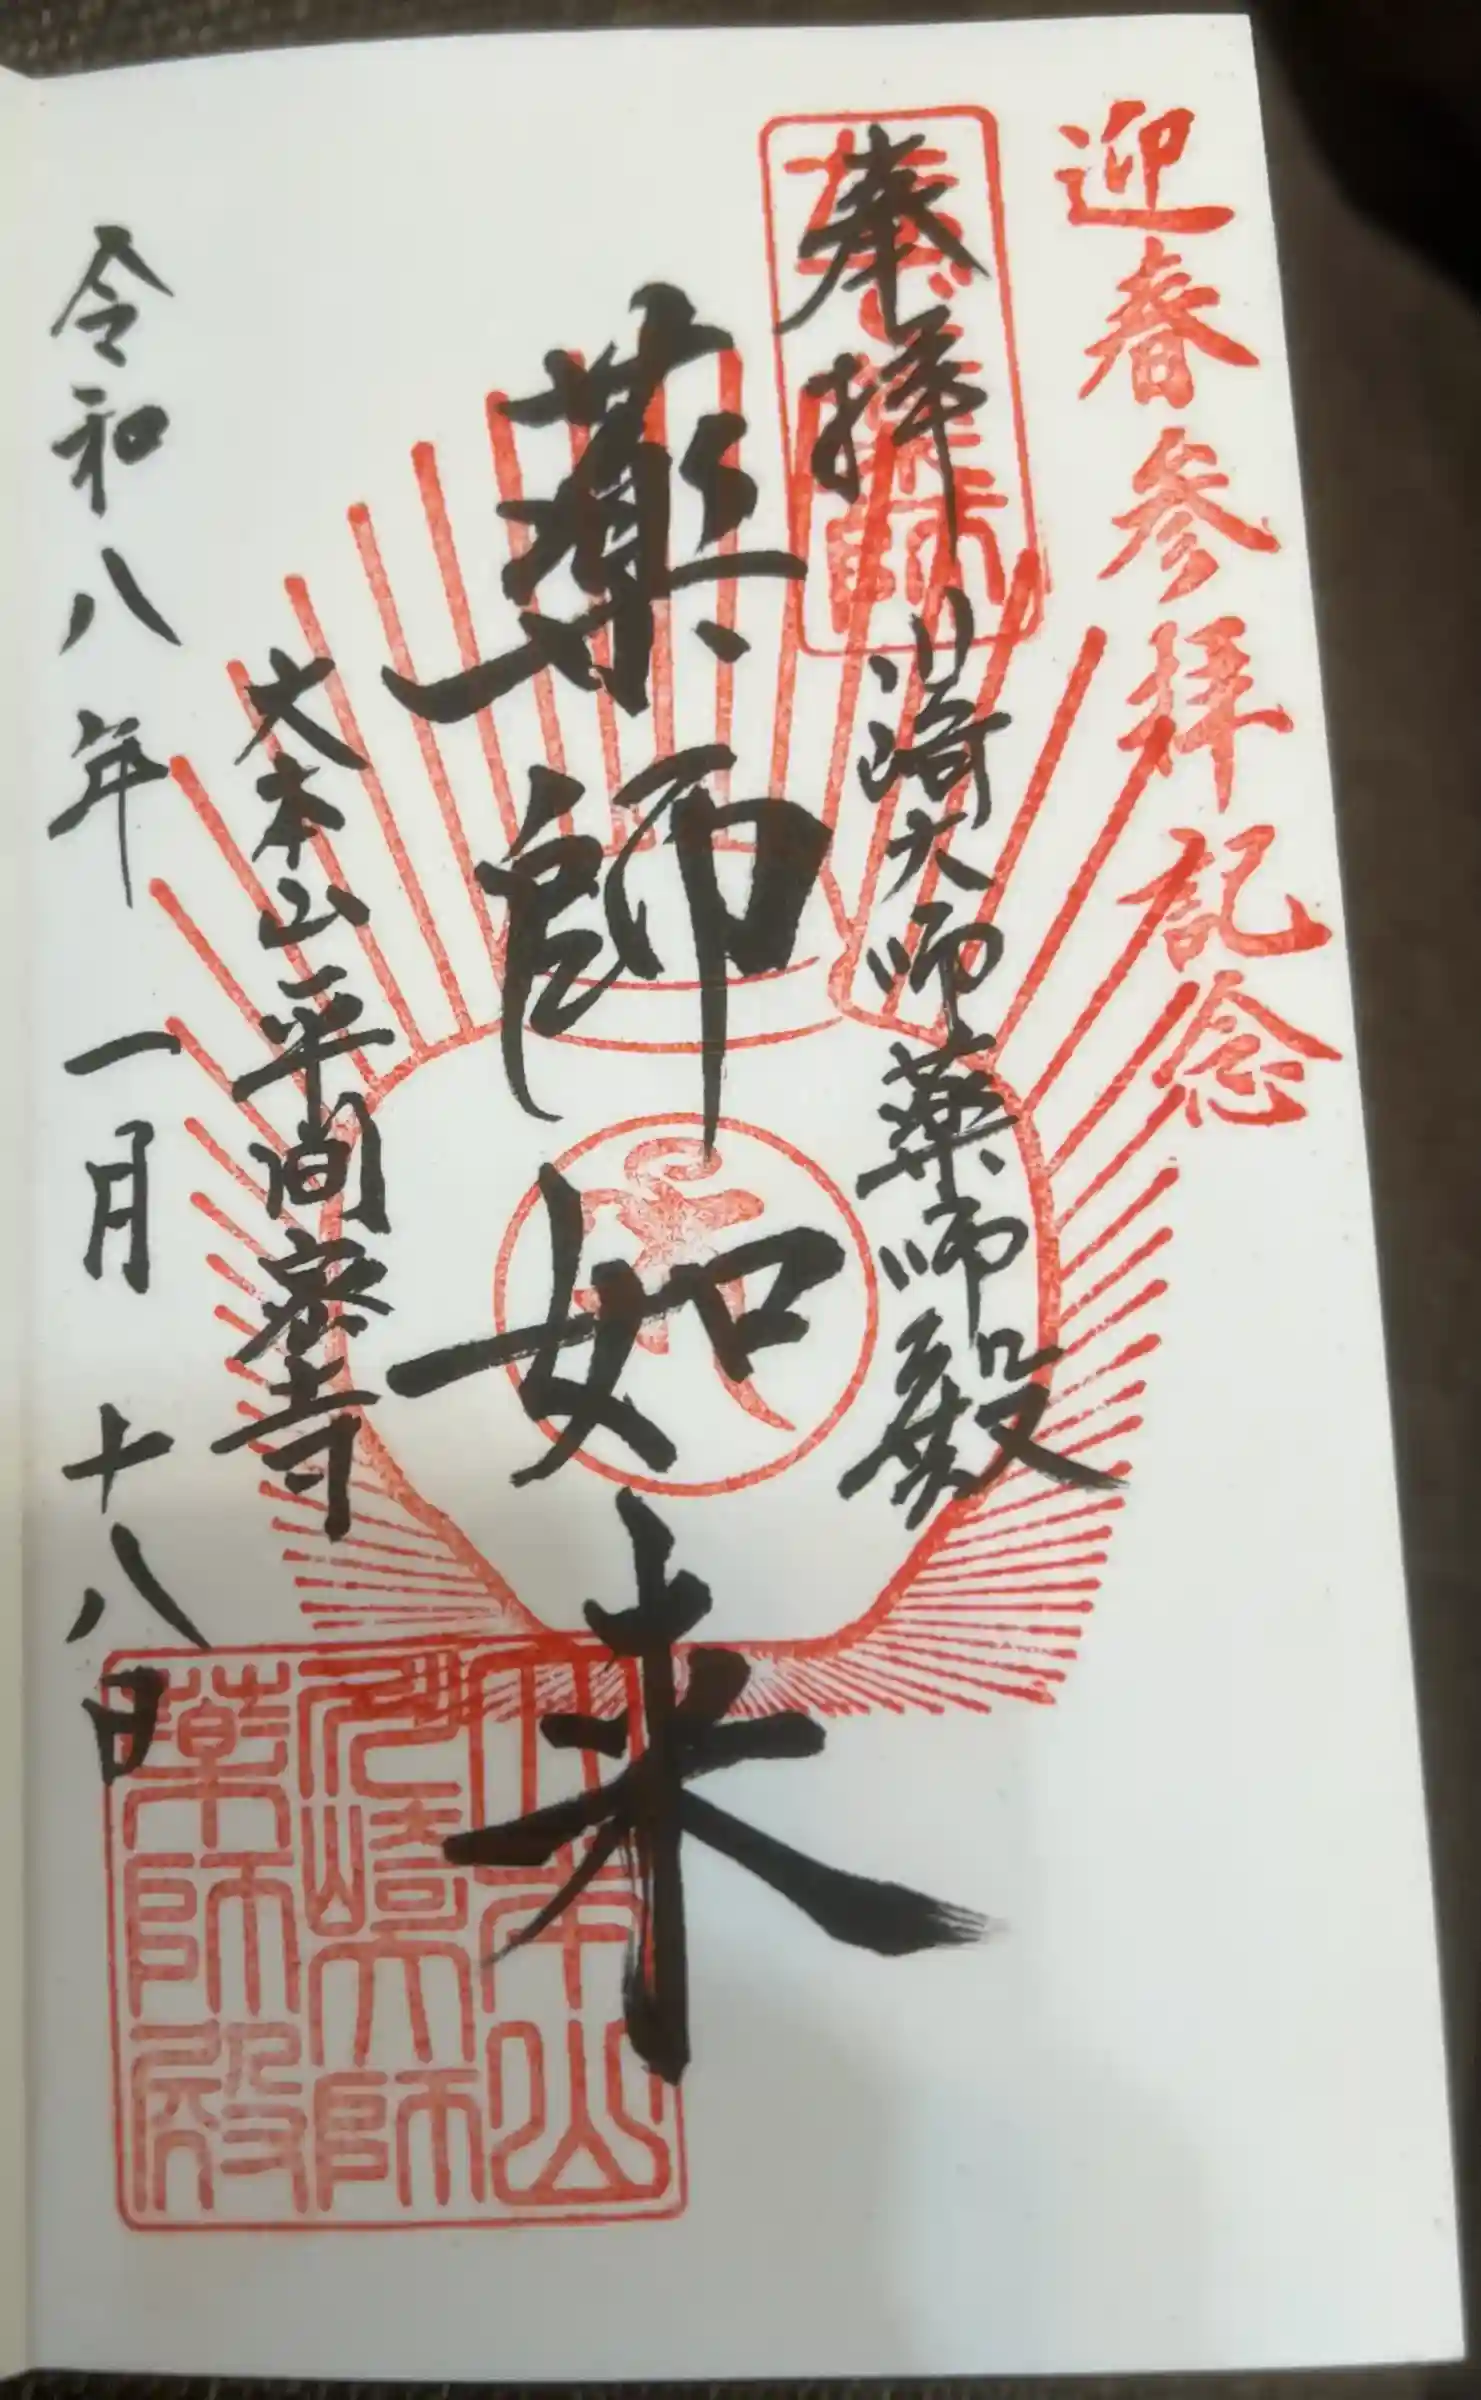 迎春参拝記念
奉拝
川崎大師薬師殿
薬師如来
大本山平間寺
令和八年一月十八日
大本山
川崎大師
薬師殿